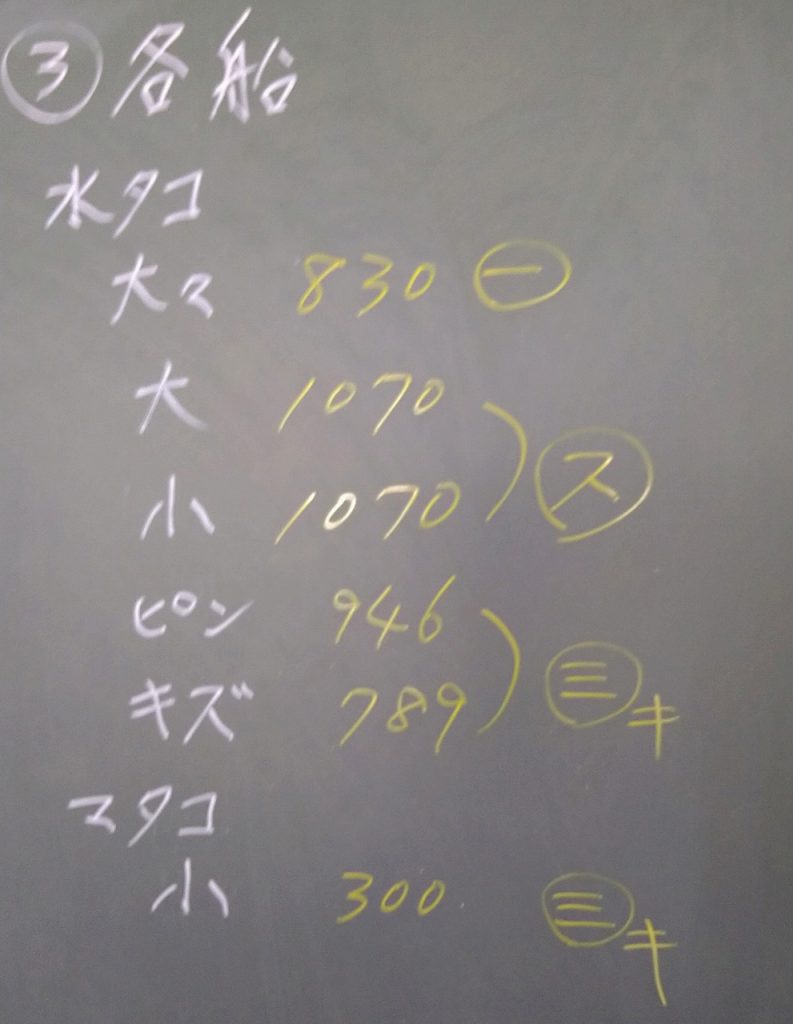 ③各船
水タコ
大々 830 ㊀
大 1070
小 1070 ㋜
ピン 946
キズ 789 ㊂キ
マタコ
小 300 ㊂キ